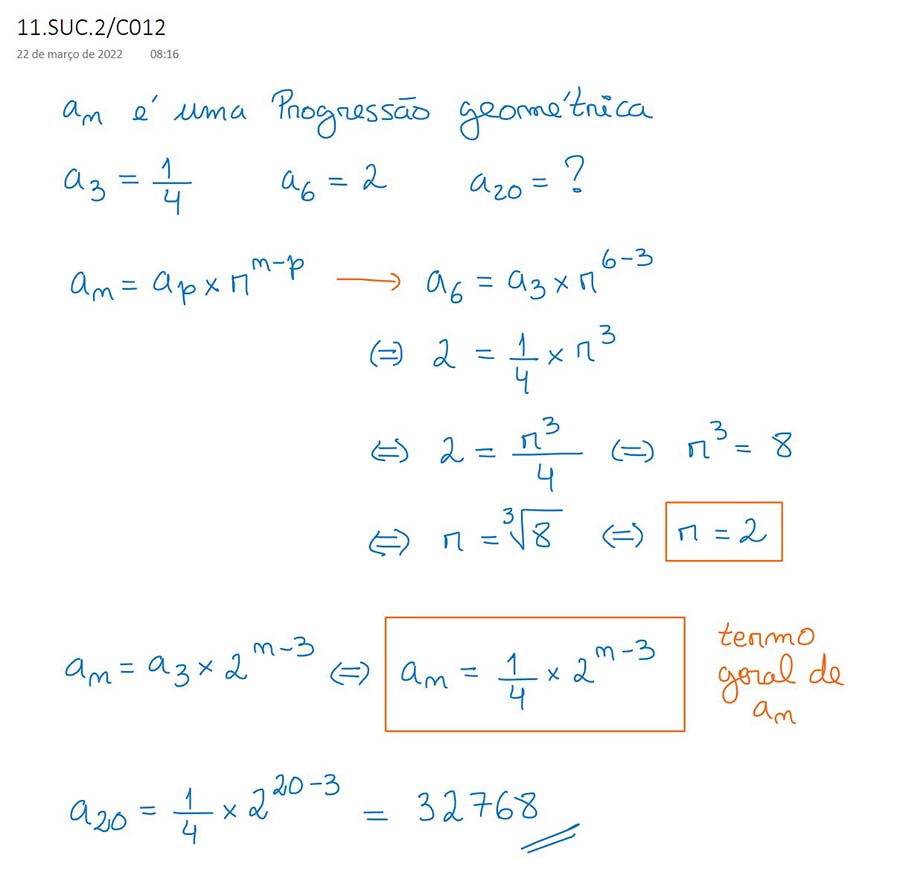 11.SUC.2/C012
22 de março de 2022 08:16
aₙ é uma Progressão geométrica
a₃ = 1/4 a₆ = 2 a₂₀ = ?
aₙ = aₚ × r^(n-p) → a₆ = a₃ × r^(6-3)
(=) 2 = 1/4 × r³
(=) 2 = r³/4 (=) r³ = 8
(=) r = ³√8 (=) r = 2
aₙ = a₃ × 2^(n-3) (=) aₙ = 1/4 × 2^(n-3)
termo
geral de
aₙ
a₂₀ = 1/4 × 2^(20-3) = 32768